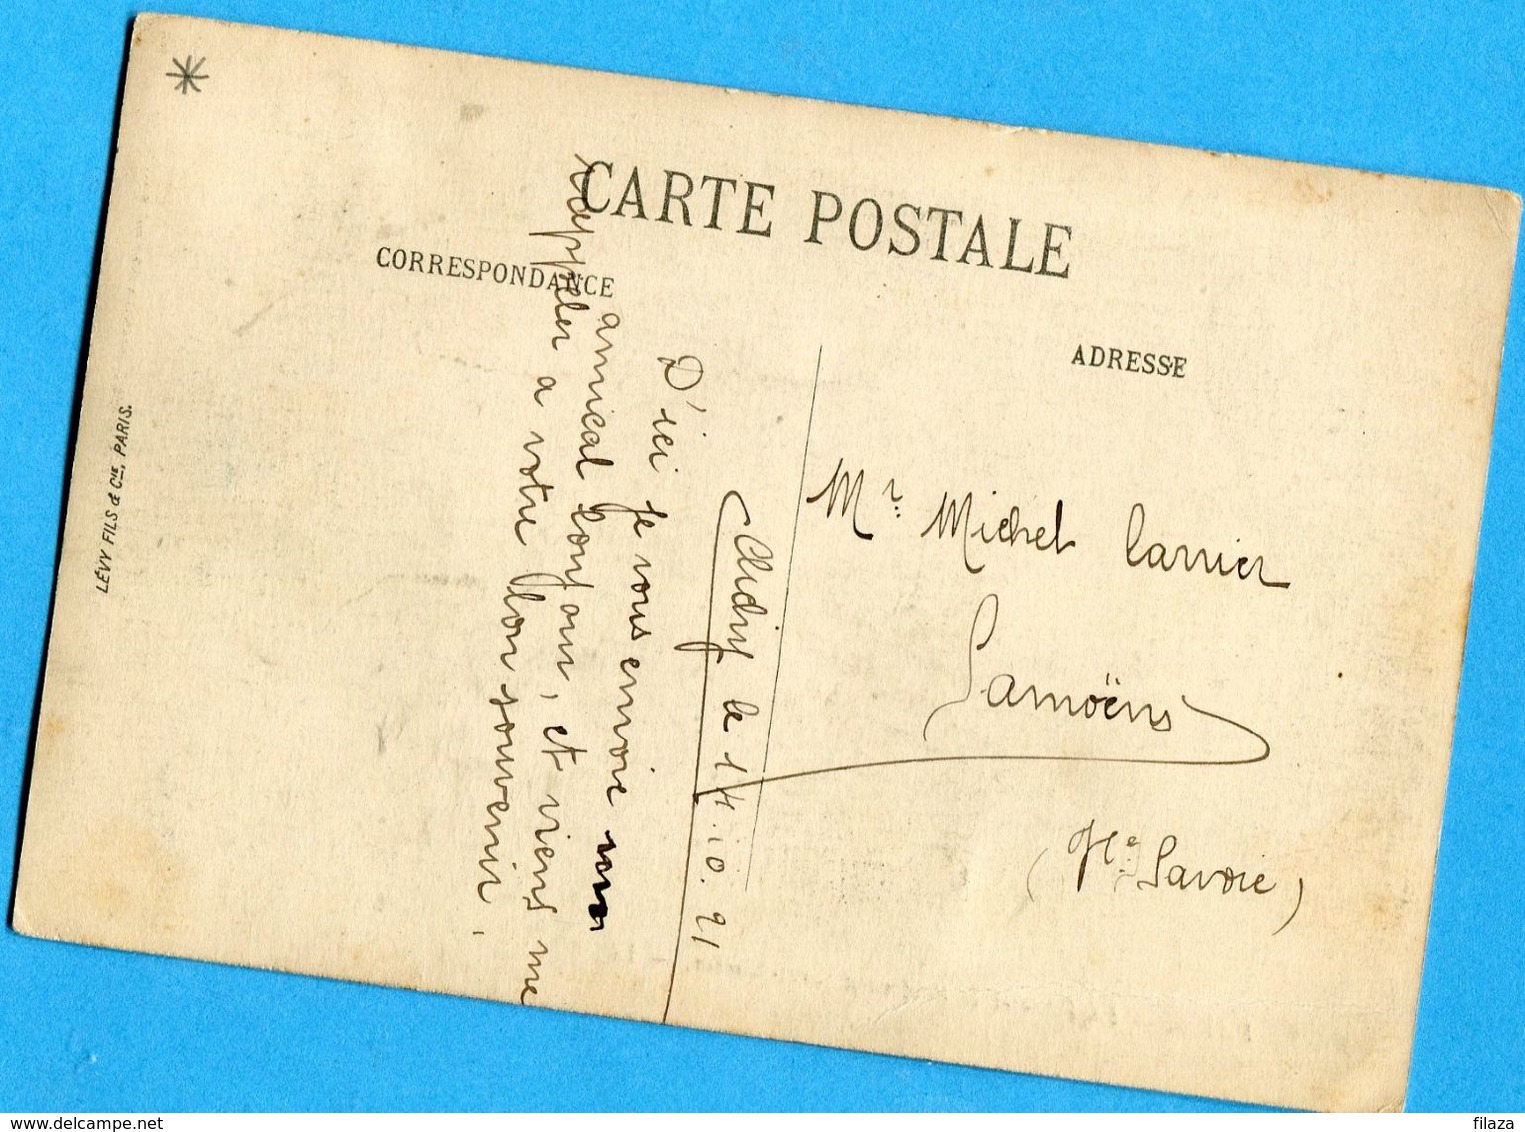 CARTE POSTALE
CORRESPONDANCE
ADRESSE
LÉVY FILS & Cie, PARIS.
le 14.10.21
D'ici je vous envoie mon
amical bonjour, et viens me
rappeler a votre bon souvenir.
Mr. Michel Carrier
Samoëns
(Hte Savoie)
www.delcampe.net
filaza